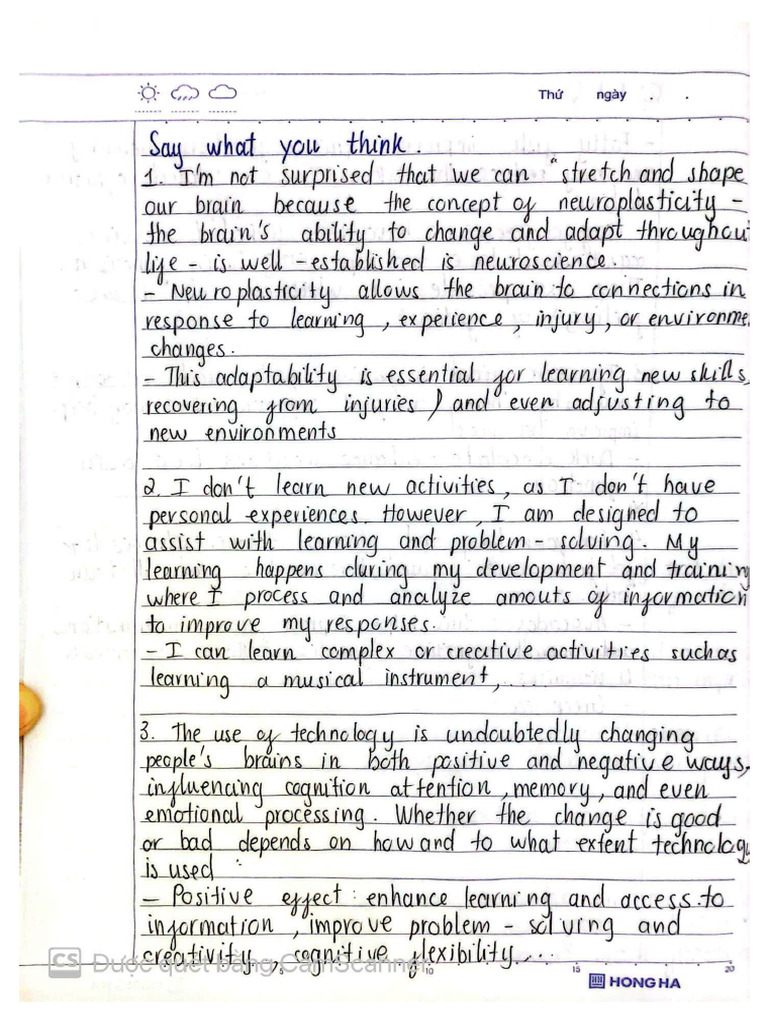 Thứ ngày . .
Say what you think.
1. I'm not surprised that we can "stretch and shape
our brain because the concept of neuroplasticity -
the brain's ability to change and adapt throughout
life - is well - established is neuroscience.
- Neuroplasticity allows the brain to connections in
response to learning, experience, injury, or environme
changes.
- This adaptability is essential for learning new skills,
recovering from injuries, and even adjusting to
new environments
2. I don't learn new activities, as I don't have
personal experiences. However, I am designed to
assist with learning and problem - solving. My
learning happens during my development and training
where I process and analyze amouts of information
to improve my responses.
- I can learn complex or creative activities such as
learning a musical instrument, ...
3. The use of technology is undoubtedly changing
people's brains in both positive and negative ways,
influencing cognition attention, memory, and even
emotional processing. Whether the change is good
or bad depends on how and to what extent technology
is used :
- Positive effect : enhance learning and access to
information, improve problem - solving and
creativity, cognitive flexibility, ...
CS Được quét bằng CamScanner
5 10 15 20
HONG HA